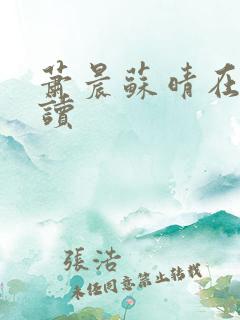 蕭晨蘇晴在
讀
張浩
未經同意禁止轉載